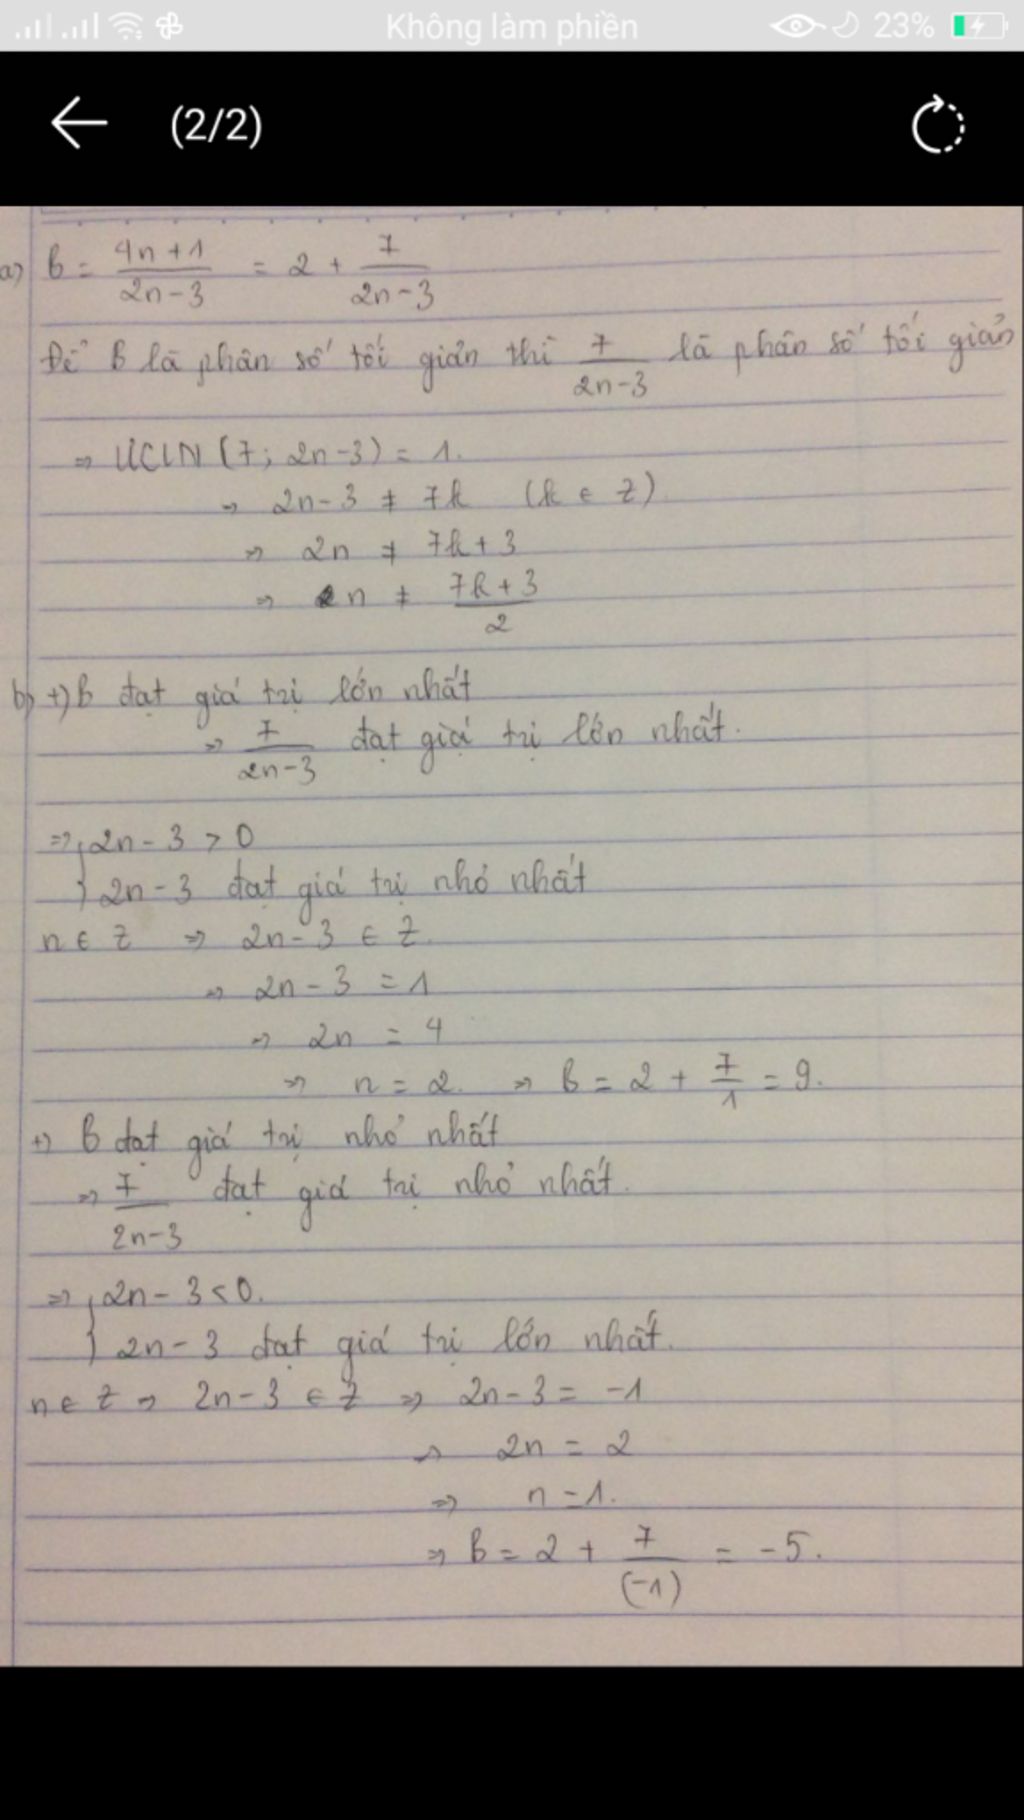 Không làm phiền 23%
(2/2)
a) B = \frac{4n+1}{2n-3} = 2 + \frac{7}{2n-3}
Để B là phân số tối giản thì \frac{7}{2n-3} là phân số tối giản
=> ƯCLN (7; 2n-3) = 1.
=> 2n-3 ≠ 7k (k ∈ Z)
=> 2n ≠ 7k+3
=> n ≠ \frac{7k+3}{2}
b) +) B đạt giá trị lớn nhất
=> \frac{7}{2n-3} đạt giá trị lớn nhất.
=> { 2n-3 > 0
2n-3 đạt giá trị nhỏ nhất
n ∈ Z => 2n-3 ∈ Z.
=> 2n-3 = 1
=> 2n = 4
=> n = 2. => B = 2 + \frac{7}{1} = 9.
+) B đạt giá trị nhỏ nhất
=> \frac{7}{2n-3} đạt giá trị nhỏ nhất.
=> { 2n-3 < 0.
2n-3 đạt giá trị lớn nhất.
n ∈ Z => 2n-3 ∈ Z => 2n-3 = -1
=> 2n = 2
=> n = 1.
=> B = 2 + \frac{7}{(-1)} = -5.